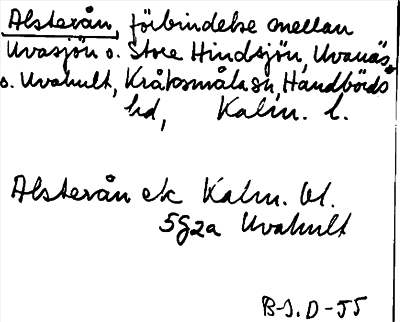 Alsterån, förbindelse mellan
Uvasjön o. Store Hindsjön, Uvanäs
o. Uvahult, Kråksmåla sn, Handbörds
hd, Kalm. l.
Alsterån ek Kalm. bl.
5g2a Uvahult
B-J.D-55